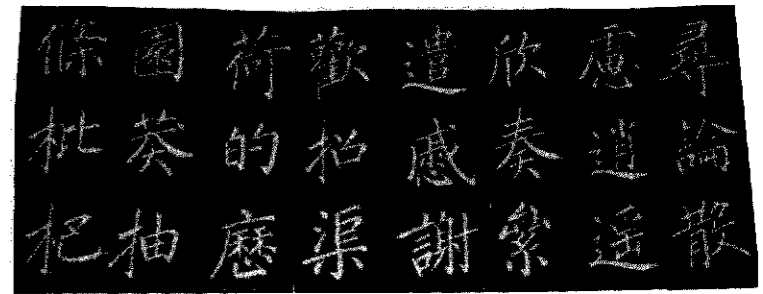 尋論散
慮逍遙
欣奏累
遣慼謝
歡招渠
荷的歷
園莽抽
條枇杷